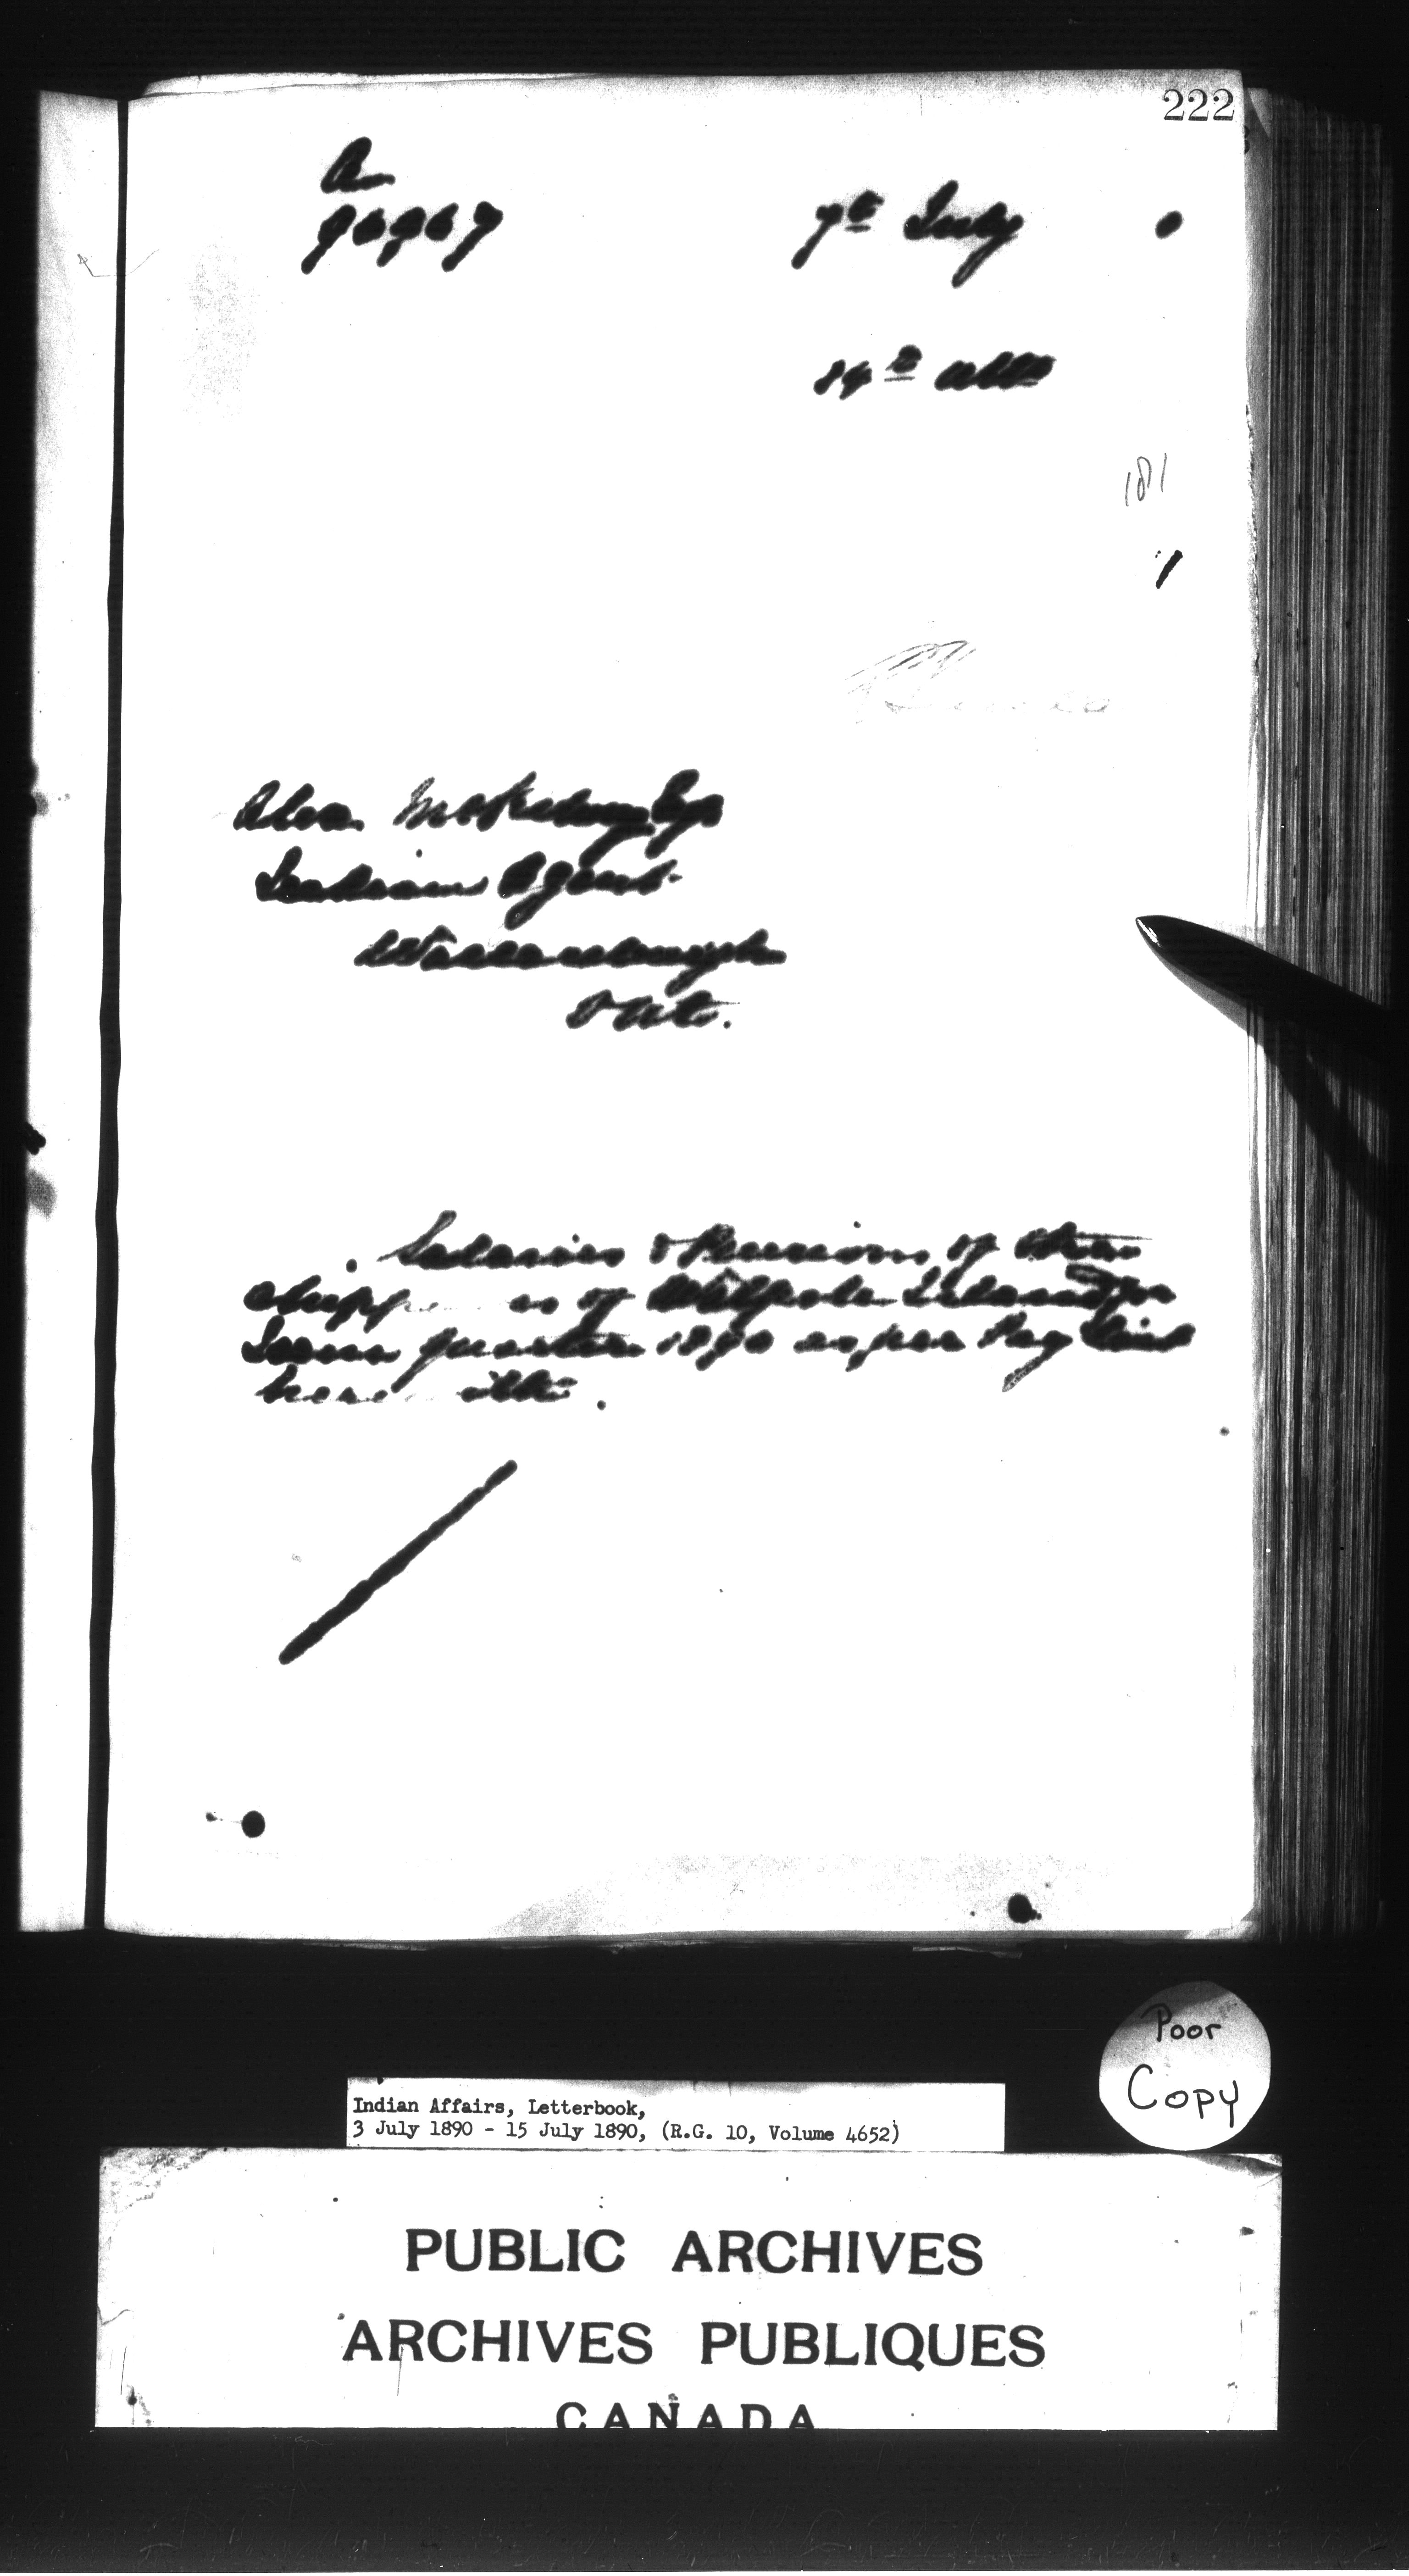 222
A
96967 7th July 0
14th ulto
181
1
Alex. McKelvey Esq
Indian Agent
Wallaceburgh
Ont.
Salaries & Pensions of the
Chipp es of Walpole Island for
June quarter 1890 as per Pay List
here ith.
Poor
Copy
Indian Affairs, Letterbook,
3 July 1890 - 15 July 1890, (R.G. 10, Volume 4652)
PUBLIC ARCHIVES
ARCHIVES PUBLIQUES
CANADA